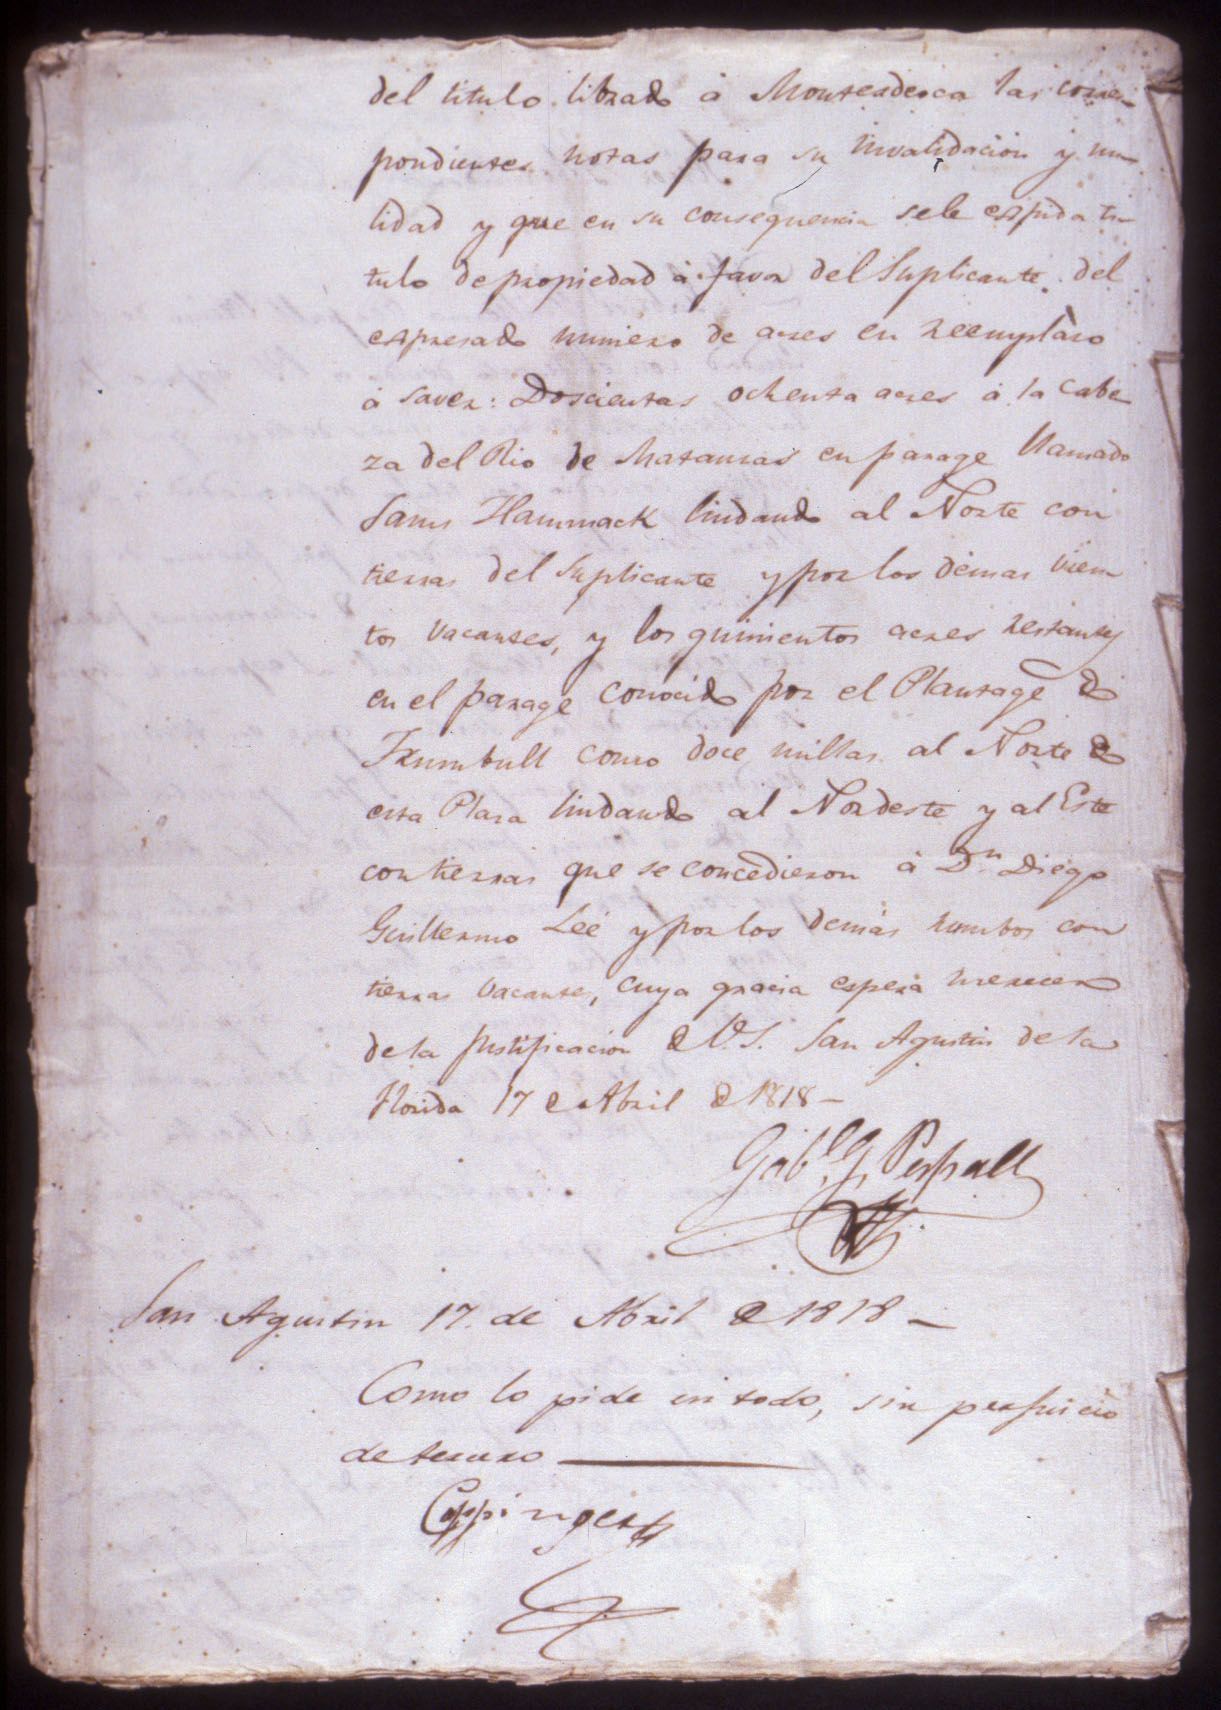 del titulo librado á Montesdeoca las corres-
pondientes notas para su invalidacion y nu-
lidad y que en su consequencia sele espida ti-
tulo de propiedad á favor del Suplicante del
espresado numero de acres en reemplaso
á saver: Doscientas ochenta acres á la Cabe
za del Rio de Matansas en parage llamado
Sams Hammack lindando al Norte con
tierras del Suplicante y por los demas vien-
tos vacantes, y los quinientos acres restantes
en el parage conocido por el Plantage de
Trumbull como doce millas al Norte de
esta Plaza lindando al Nordeste y al Este
con tierras que se concedieron á Dn. Diego
Guillermo Leé y por los demás rumbos con
tierras vacantes, cuya gracia espera merecer
de la Justificacion de V.S. San Agustin de la
Florida 17 de Abril de 1818 –
Gabl. G. Perpall
San Agustin 17. de Abril de 1818 –
Como lo pide en todo, sin perjuicio
de tercero
Coppinger